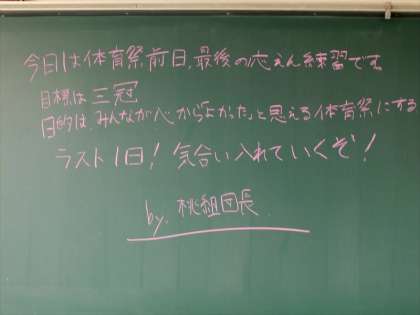 今日は体育祭前日、最後の応えん練習です
目標は三冠
目的は、みんなが心から「よかった」と思える体育祭にする
ラスト1日！気合い入れていくぞ！
by. 桃組団長